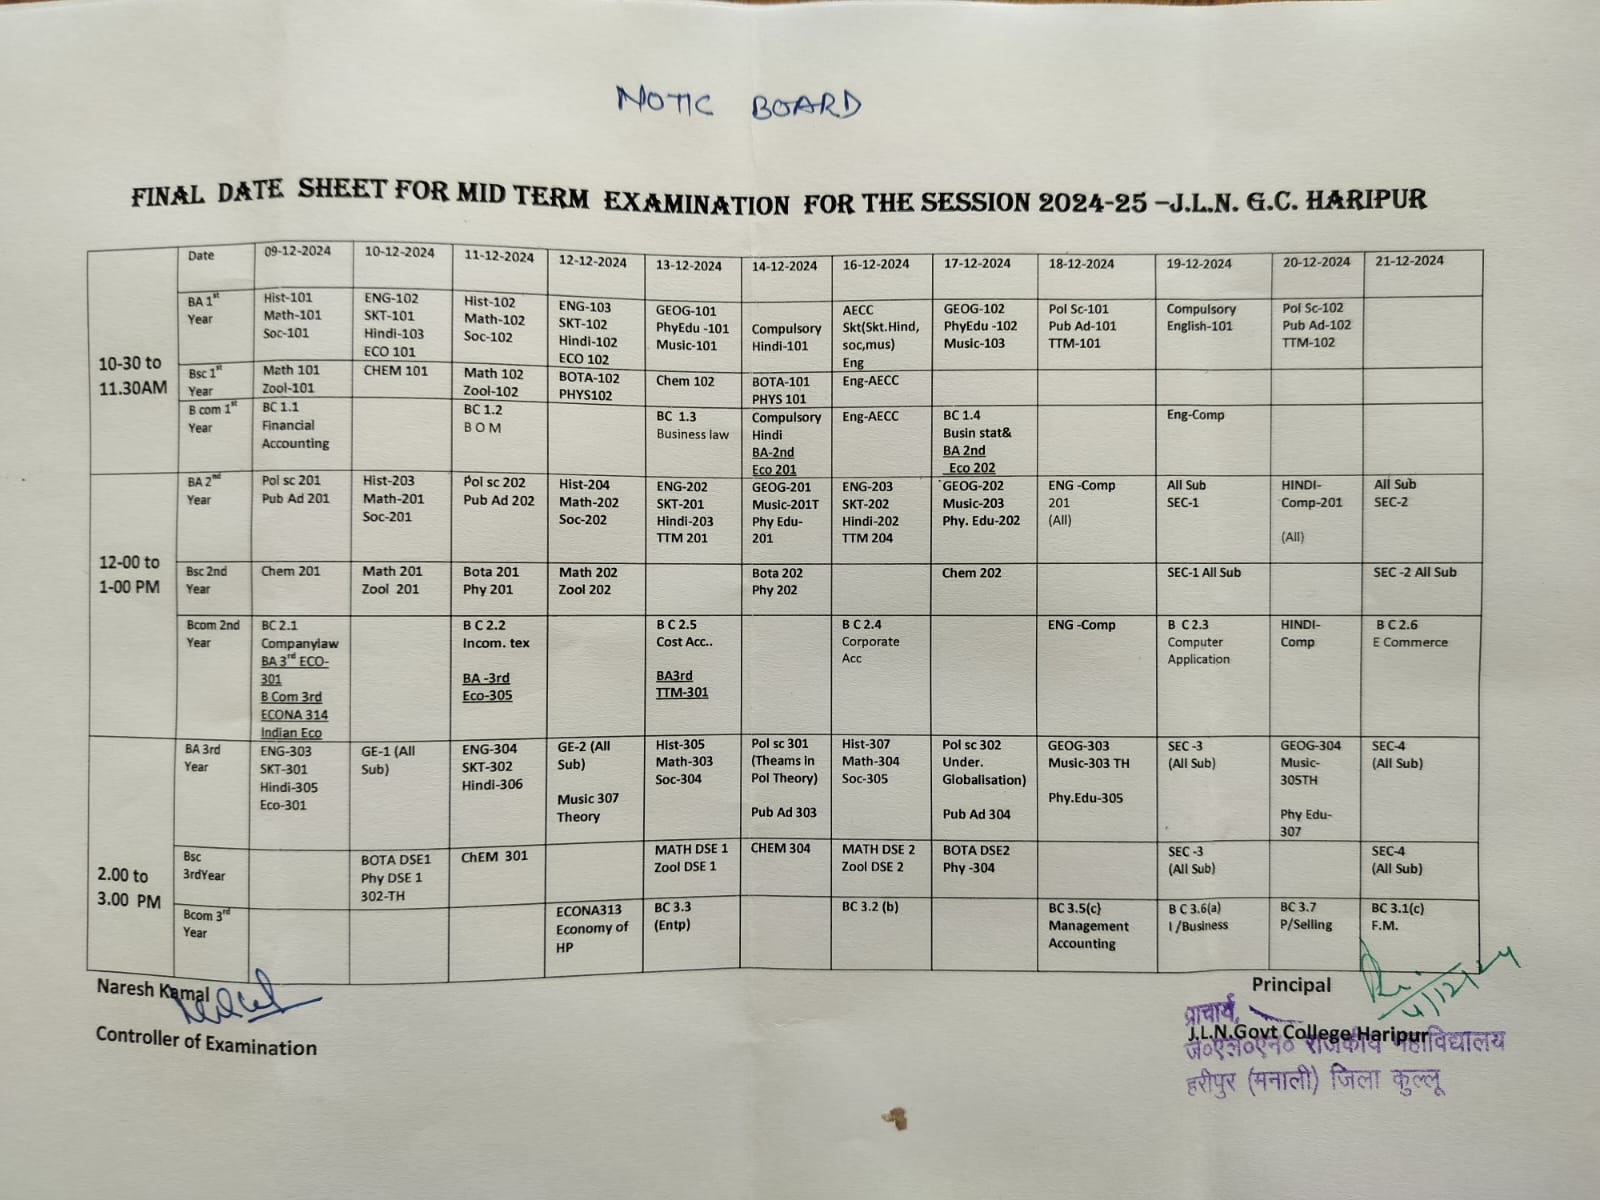 NOTIC BOARD
FINAL DATE SHEET FOR MID TERM EXAMINATION FOR THE SESSION 2024-25 –J.L.N. G.C. HARIPUR
Date 09-12-2024 10-12-2024 11-12-2024 12-12-2024 13-12-2024 14-12-2024 16-12-2024 17-12-2024 18-12-2024 19-12-2024 20-12-2024 21-12-2024
10-30 to
11.30AM
BA 1st
Year
Hist-101
Math-101
Soc-101
ENG-102
SKT-101
Hindi-103
ECO 101
Hist-102
Math-102
Soc-102
ENG-103
SKT-102
Hindi-102
ECO 102
GEOG-101
PhyEdu -101
Music-101
Compulsory
Hindi-101
AECC
Skt(Skt.Hind,
soc,mus)
Eng
GEOG-102
PhyEdu -102
Music-103
Pol Sc-101
Pub Ad-101
TTM-101
Compulsory
English-101
Pol Sc-102
Pub Ad-102
TTM-102
Bsc 1st
Year
Math 101
Zool-101
CHEM 101
Math 102
Zool-102
BOTA-102
PHYS102
Chem 102
BOTA-101
PHYS 101
Eng-AECC
B com 1st
Year
BC 1.1
Financial
Accounting
BC 1.2
B O M
BC 1.3
Business law
Compulsory
Hindi
BA-2nd
Eco 201
Eng-AECC
BC 1.4
Busin stat&
BA 2nd
Eco 202
Eng-Comp
12-00 to
1-00 PM
BA 2nd
Year
Pol sc 201
Pub Ad 201
Hist-203
Math-201
Soc-201
Pol sc 202
Pub Ad 202
Hist-204
Math-202
Soc-202
ENG-202
SKT-201
Hindi-203
TTM 201
GEOG-201
Music-201T
Phy Edu-
201
ENG-203
SKT-202
Hindi-202
TTM 204
GEOG-202
Music-203
Phy. Edu-202
ENG -Comp
201
(All)
All Sub
SEC-1
HINDI-
Comp-201
(All)
All Sub
SEC-2
Bsc 2nd
Year
Chem 201
Math 201
Zool 201
Bota 201
Phy 201
Math 202
Zool 202
Bota 202
Phy 202
Chem 202
SEC-1 All Sub
SEC -2 All Sub
Bcom 2nd
Year
BC 2.1
Companylaw
BA 3rd ECO-
301
B Com 3rd
ECONA 314
Indian Eco
B C 2.2
Incom. tex
BA -3rd
Eco-305
B C 2.5
Cost Acc..
BA3rd
TTM-301
B C 2.4
Corporate
Acc
ENG -Comp
B C 2.3
Computer
Application
HINDI-
Comp
B C 2.6
E Commerce
2.00 to
3.00 PM
BA 3rd
Year
ENG-303
SKT-301
Hindi-305
Eco-301
GE-1 (All
Sub)
ENG-304
SKT-302
Hindi-306
GE-2 (All
Sub)
Music 307
Theory
Hist-305
Math-303
Soc-304
Pol sc 301
(Theams in
Pol Theory)
Pub Ad 303
Hist-307
Math-304
Soc-305
Pol sc 302
Under.
Globalisation)
Pub Ad 304
GEOG-303
Music-303 TH
Phy.Edu-305
SEC -3
(All Sub)
GEOG-304
Music-
305TH
Phy Edu-
307
SEC-4
(All Sub)
Bsc
3rdYear
BOTA DSE1
Phy DSE 1
302-TH
ChEM 301
MATH DSE 1
Zool DSE 1
CHEM 304
MATH DSE 2
Zool DSE 2
BOTA DSE2
Phy -304
SEC -3
(All Sub)
SEC-4
(All Sub)
Bcom 3rd
Year
ECONA313
Economy of
HP
BC 3.3
(Entp)
BC 3.2 (b)
BC 3.5(c)
Management
Accounting
B C 3.6(a)
I /Business
BC 3.7
P/Selling
BC 3.1(c)
F.M.
Naresh Kamal
Controller of Examination
Principal
4/12/24
प्राचार्य,
J.L.N.Govt College Haripur
ज०एल०एन० राजकीय महाविद्यालय
हरीपुर (मनाली) जिला कुल्लू